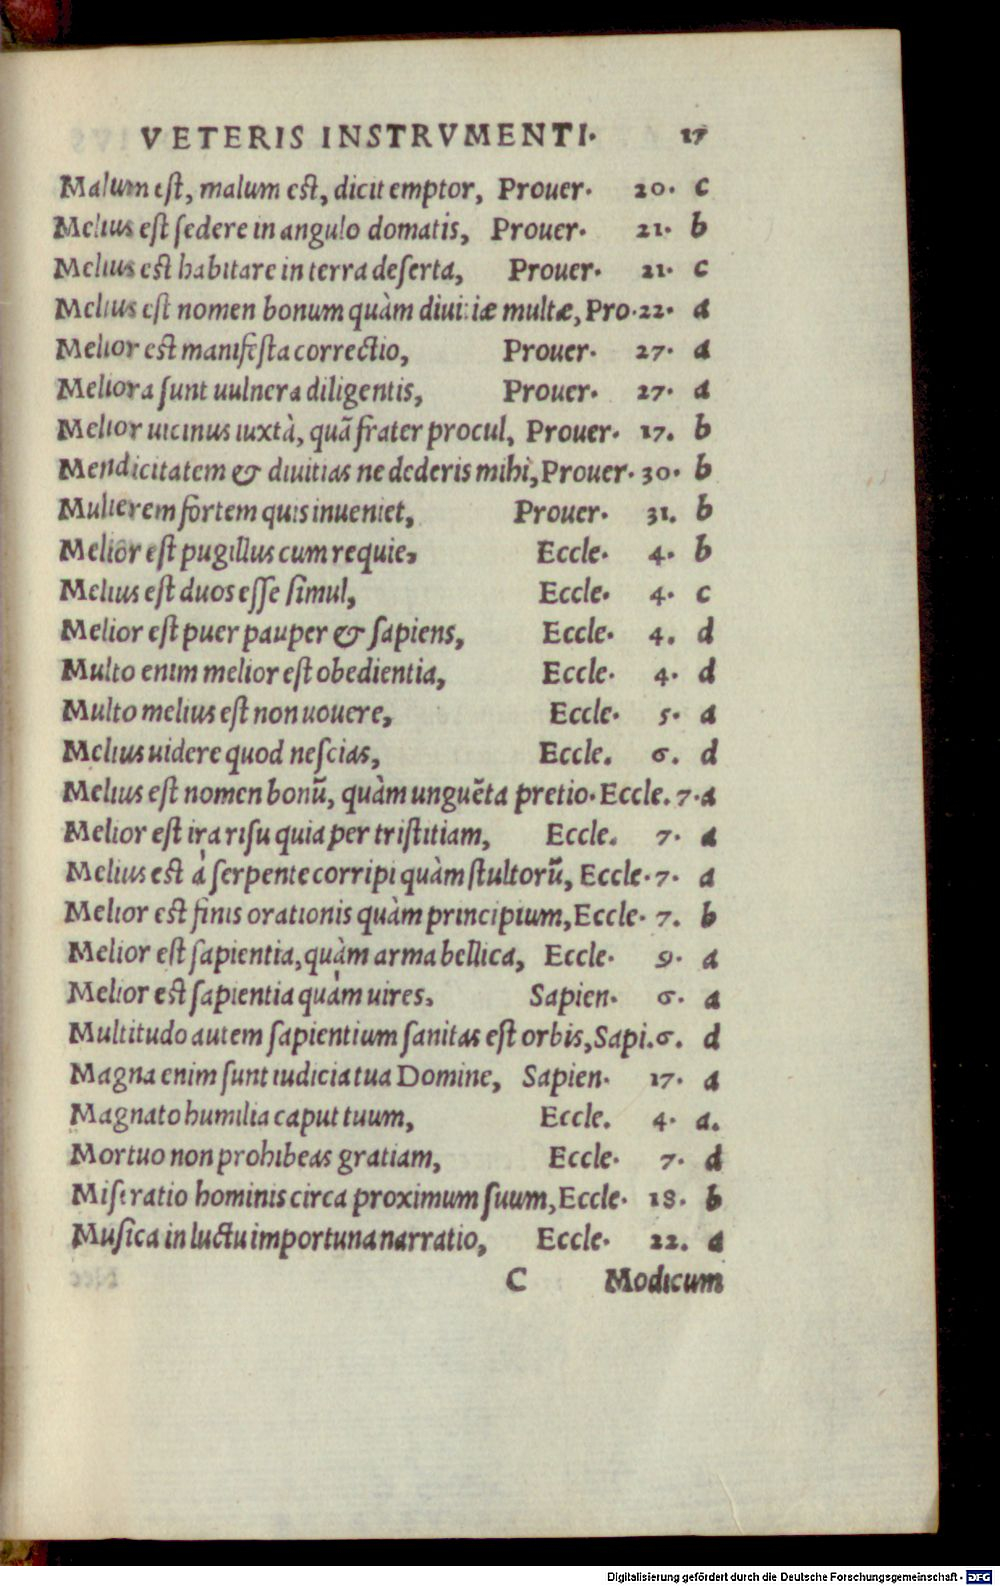 VETERIS INSTRVMENTI. 17
Malum est, malum est, dicit emptor, Prouer. 20. c
Melius est sedere in angulo domatis, Prouer. 21. b
Melius est habitare in terra deserta, Prouer. 21. c
Melius est nomen bonum quàm diuitiæ multæ, Pro. 22. a
Melior est manifesta correctio, Prouer. 27. a
Meliora sunt uulnera diligentis, Prouer. 27. a
Melior uicinus iuxtà, quã frater procul, Prouer. 17. b
Mendicitatem & diuitias ne dederis mihi, Prouer. 30. b
Mulierem fortem quis inueniet, Prouer. 31. b
Melior est pugillus cum requie, Eccle. 4. b
Melius est duos esse simul, Eccle. 4. c
Melior est puer pauper & sapiens, Eccle. 4. d
Multo enim melior est obedientia, Eccle. 4. d
Multo melius est non uouere, Eccle. 5. a
Melius uidere quod nescias, Eccle. 6. d
Melius est nomen bonũ, quàm unguẽta pretio. Eccle. 7. a
Melior est ira risu quia per tristitiam, Eccle. 7. a
Melius est à serpente corripi quàm stultorũ, Eccle. 7. a
Melior est finis orationis quàm principium, Eccle. 7. b
Melior est sapientia, quàm arma bellica, Eccle. 9. a
Melior est sapientia quàm uires, Sapien. 6. a
Multitudo autem sapientium sanitas est orbis, Sapi. 6. d
Magna enim sunt iudicia tua Domine, Sapien. 17. a
Magnato humilia caput tuum, Eccle. 4. a.
Mortuo non prohibeas gratiam, Eccle. 7. d
Miseratio hominis circa proximum suum, Eccle. 18. b
Musica in luctu importuna narratio, Eccle. 22. a
C Modicum
Digitalisierung gefördert durch die Deutsche Forschungsgemeinschaft - DFG